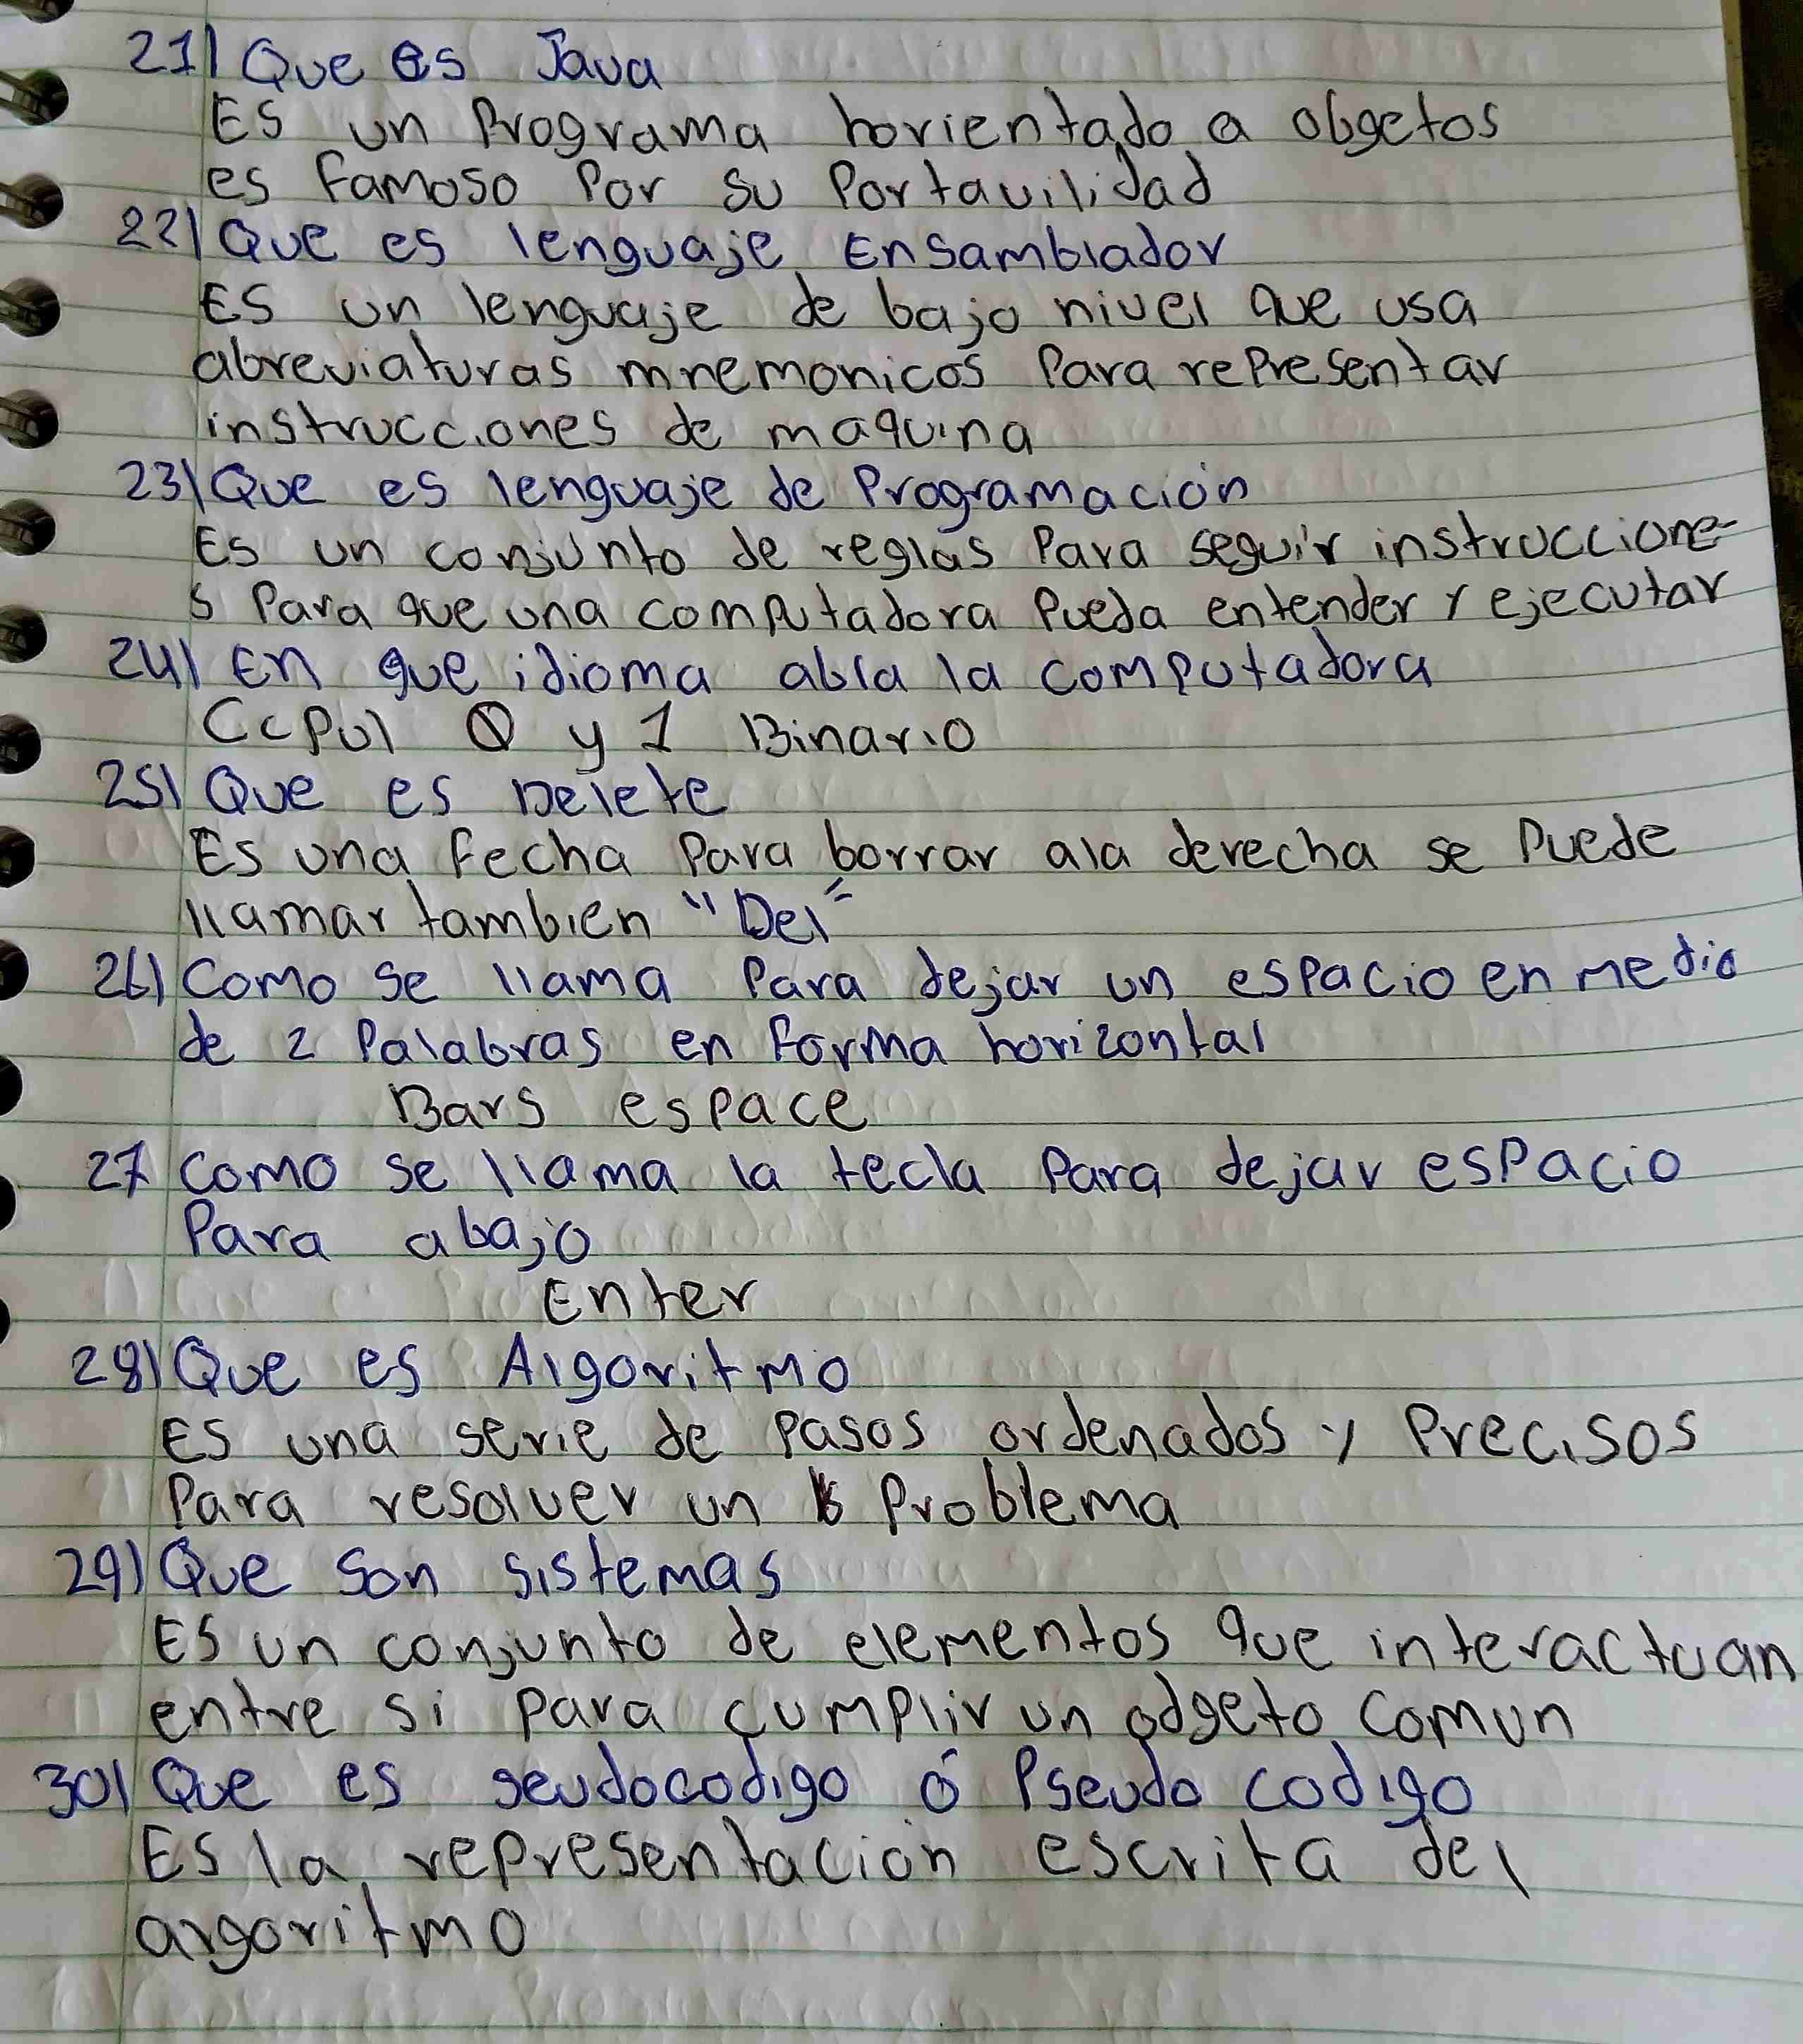 21) Que es Java
Es un Programa horientado a obgetos
es famoso Por su Portavilidad
22) Que es lenguaje Ensamblador
Es un lenguaje de bajo nivel que usa
abreviaturas mnemonicos Para representar
instrucciones de maquina
23) Que es lenguaje de Programación
Es un conjunto de reglas Para seguir instruccione-
s Para que una computadora Pueda entender y ejecutar
24) En que idioma abla la computadora
0 y 1 Binario
25) Que es Delete
Es una fecha Para borrar ala derecha se Puede
llamar tambien "Del"
26) Como se llama Para dejar un espacio en medio
de 2 Palabras en forma horizontal
Bars espace
27 Como se llama la tecla Para dejar espacio
Para abajo
Enter
28) Que es Algoritmo
Es una serie de Pasos ordenados y Precisos
Para resolver un Problema
29) Que son sistemas
Es un conjunto de elementos que interactuan
entre si para cumplir un odgeto comun
30) Que es seudocodigo ó Pseudo codigo
Es la representación escrita del
algoritmo